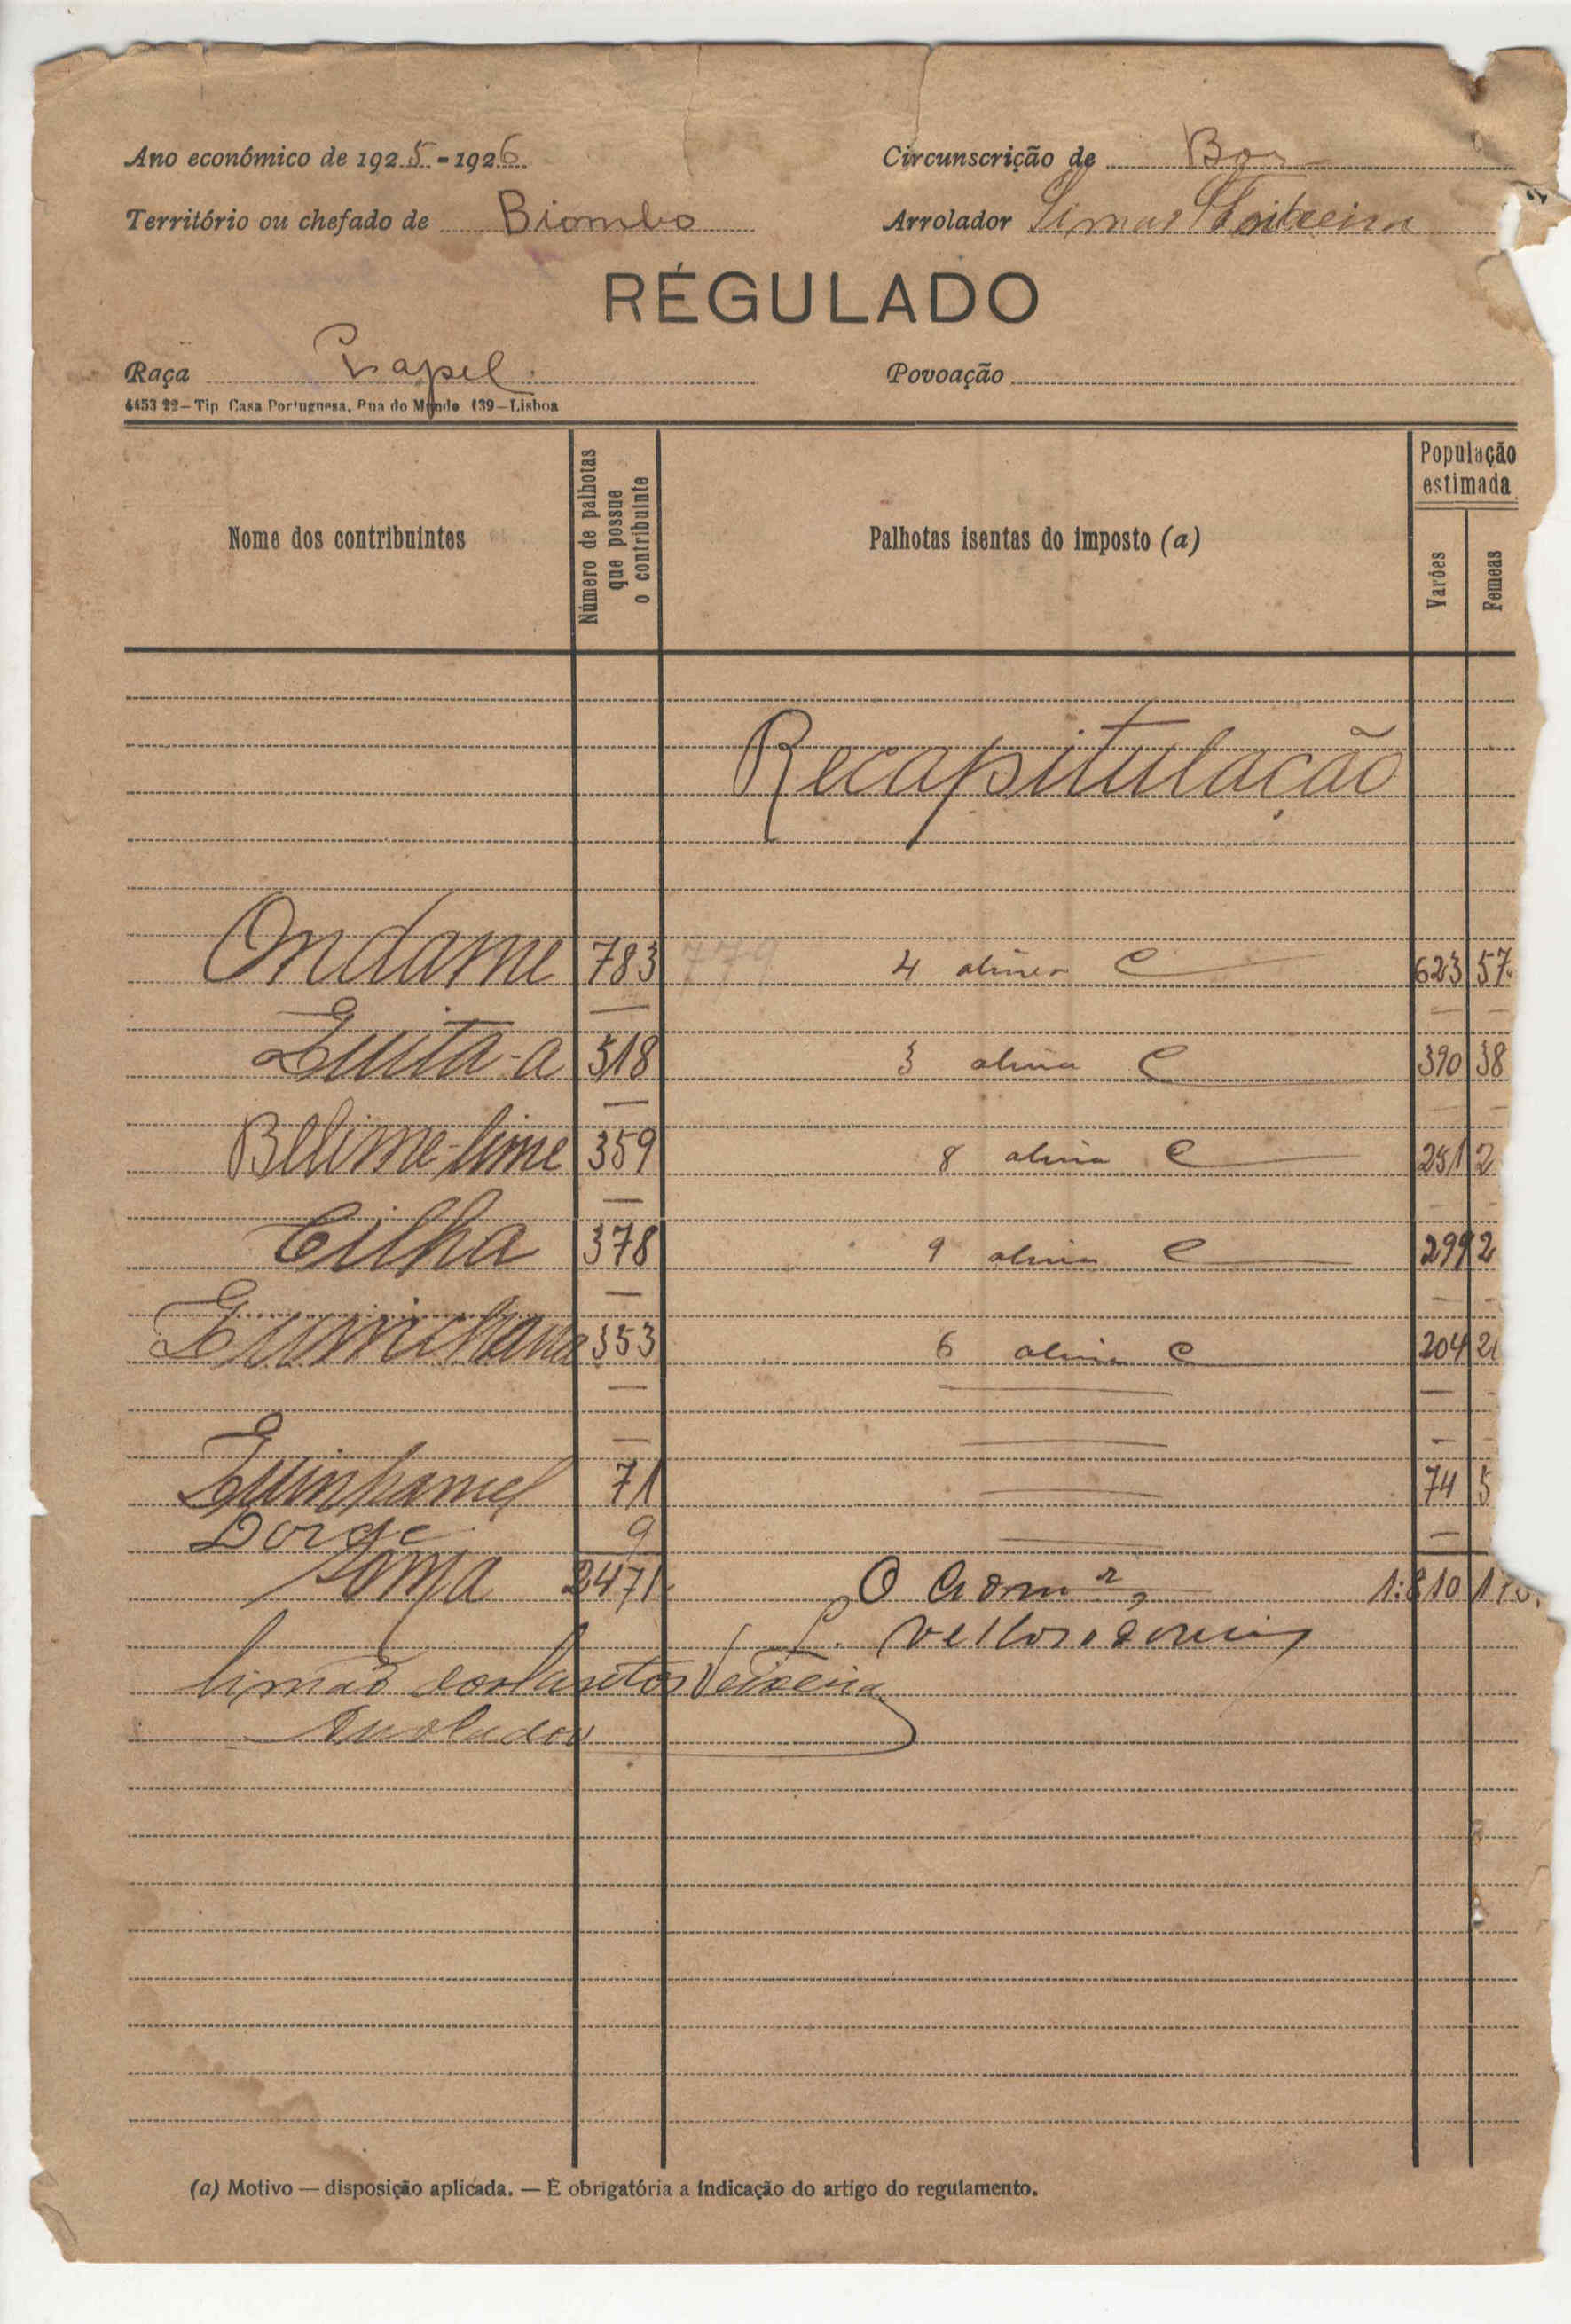 Ano económico de 1925-1926 Circunscrição de Bor
Território ou chefado de Biombo Arrolador Simão Teixeira
RÉGULADO
Raça Papel Povoação
4453 22 — Tip. Casa Portuguesa, Rua do Mundo 139 — Lisboa
Nome dos contribuintes
Número de palhotas que possue o contribuinte
Palhotas isentas do imposto (a)
População estimada
Varões
Femeas
Recapitulação
Ondame 783 779 4 alinea C 623 57
Quita-a 518 3 alinea C 390 38
Blime-lime 359 8 alinea C 251 2
Cilha 378 9 alinea C 299 2
353 6 alinea C 204 2
Quinhamel 71 74 5
Dorse 9
Soma 2471 O 1:810 1
Simão dos Santos Teixeira
Arrolador
(a) Motivo — disposição aplicada. — É obrigatória a indicação do artigo do regulamento.